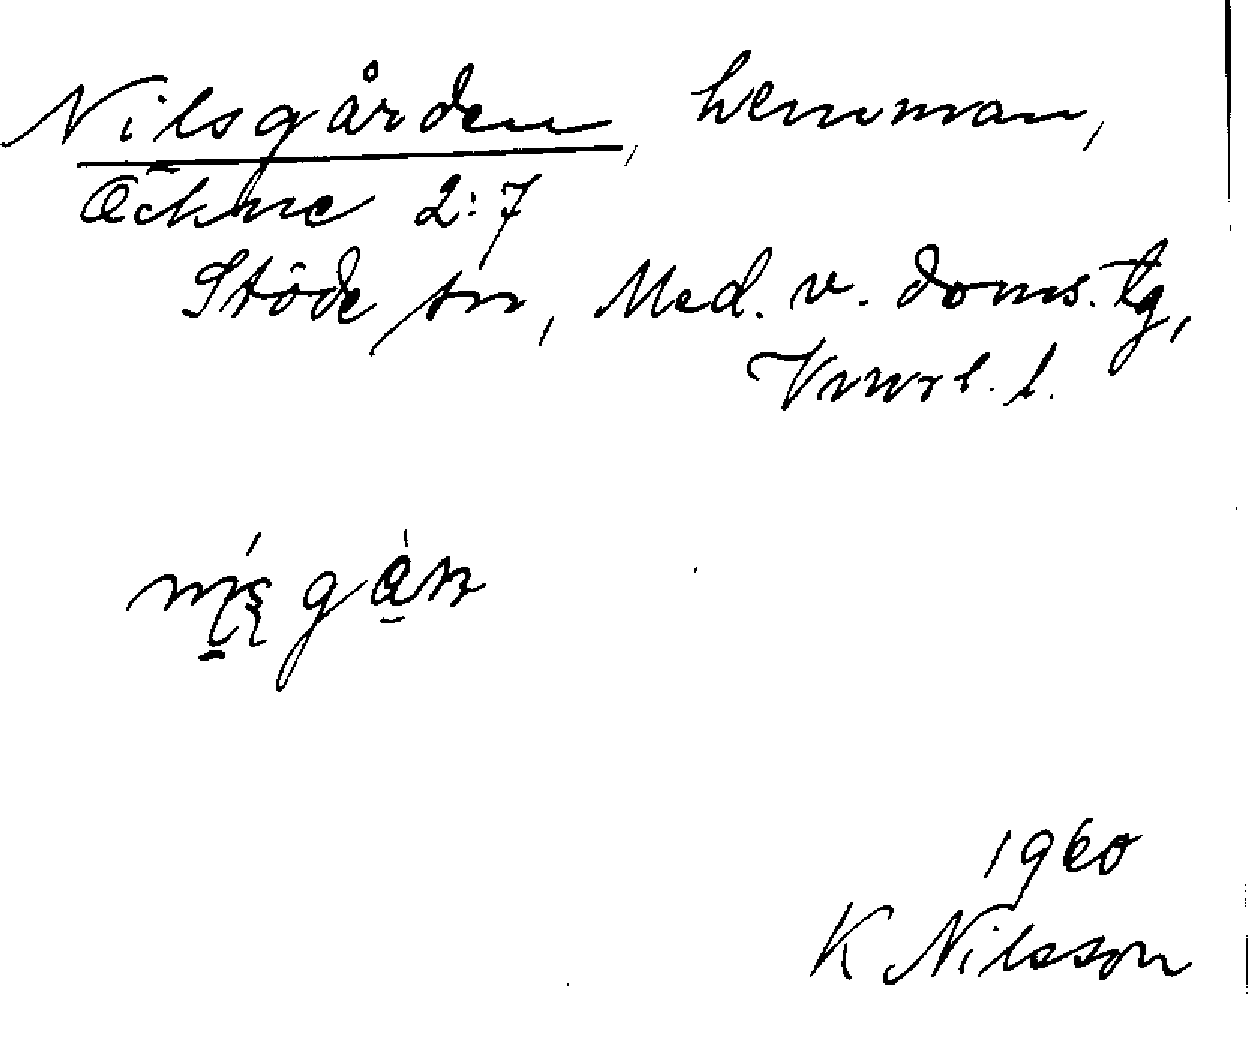 Nilsgården, hemman,
Öckne 2:7
Stöde sn, Med. v. doms. tg,
Vnorl. l.
1960
K Nilsson